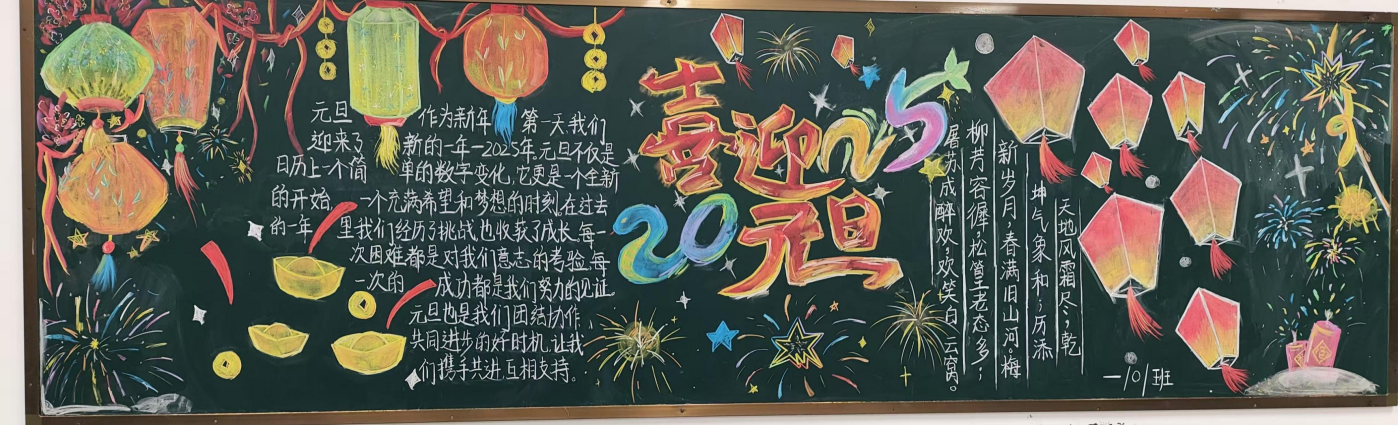 元旦 作为新年 第一天,我们
迎来了 新的一年-2025年.元旦不仅是
日历上一个简 单的数字变化,它更是一个全新
的开始, 一个充满希望和梦想的时刻,在过去
的一年 里我们经历了挑战,也收获了成长,每一
次困难都是对我们意志的考验,每
一次的 成功都是我们努力的见证.
元旦也是我们团结协作,
共同进步的好时机,让我
们携手共进,互相支持。
喜迎
元旦
2025
天地风霜尽,乾
坤气象和;历添
新岁月,春满旧山河。梅
柳芳容徲,松篁老态多;
屠苏成醉欢,欢笑白云窝。
一101班